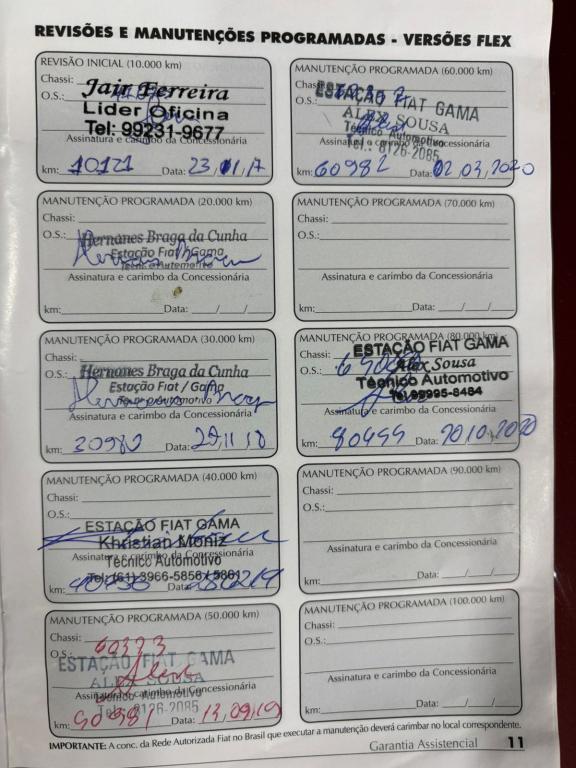 REVISÕES E MANUTENÇÕES PROGRAMADAS - VERSÕES FLEX
REVISÃO INICIAL (10.000 km)
Chassi:
O.S.:
Jair Ferreira
Lider Oficina
Tel: 99231-9677
Assinatura e carimbo da Concessionária
km: 10121 Data: 23/01/17
MANUTENÇÃO PROGRAMADA (20.000 km)
Chassi:
O.S.:
Hernanes Braga da Cunha
Estação Fiat / Gama
Técnico Automotivo
Assinatura e carimbo da Concessionária
km: Data: / /
MANUTENÇÃO PROGRAMADA (30.000 km)
Chassi:
O.S.:
Hernanes Braga da Cunha
Estação Fiat / Gama
Técnico Automotivo
Assinatura e carimbo da Concessionária
km: 30980 Data:
MANUTENÇÃO PROGRAMADA (40.000 km)
Chassi:
O.S.:
ESTAÇÃO FIAT GAMA
Khristian Moniz
Assinatura e carimbo da Concessionária
Técnico Automotivo
Tel: (61) 3966-5856 / 5861
km: Data:
MANUTENÇÃO PROGRAMADA (50.000 km)
Chassi:
O.S.: 60373
ESTAÇÃO FIAT GAMA
ALEX SOUSA
Assinatura e carimbo da Concessionária
Técnico Automotivo
Tel.: 8126-2085
km: 50981 Data: 13/09/19
MANUTENÇÃO PROGRAMADA (60.000 km)
Chassi:
O.S.:
ESTAÇÃO FIAT GAMA
ALEX SOUSA
Técnico Automotivo
Assinatura e carimbo da Concessionária
Tel.: 8126-2085
km: 60982 Data: 02/03/2020
MANUTENÇÃO PROGRAMADA (70.000 km)
Chassi:
O.S.:
Assinatura e carimbo da Concessionária
km: Data: / /
MANUTENÇÃO PROGRAMADA (80.000 km)
Chassi:
O.S.:
ESTAÇÃO FIAT GAMA
Alex Sousa
Técnico Automotivo
Tel. 99995-8484
Assinatura e carimbo da Concessionária
km: 80499 Data: 20/10/2020
MANUTENÇÃO PROGRAMADA (90.000 km)
Chassi:
O.S.:
Assinatura e carimbo da Concessionária
km: Data: / /
MANUTENÇÃO PROGRAMADA (100.000 km)
Chassi:
O.S.:
Assinatura e carimbo da Concessionária
km: Data: / /
IMPORTANTE: A conc. da Rede Autorizada Fiat no Brasil que executar a manutenção deverá carimbar no local correspondente.
Garantia Assistencial 11